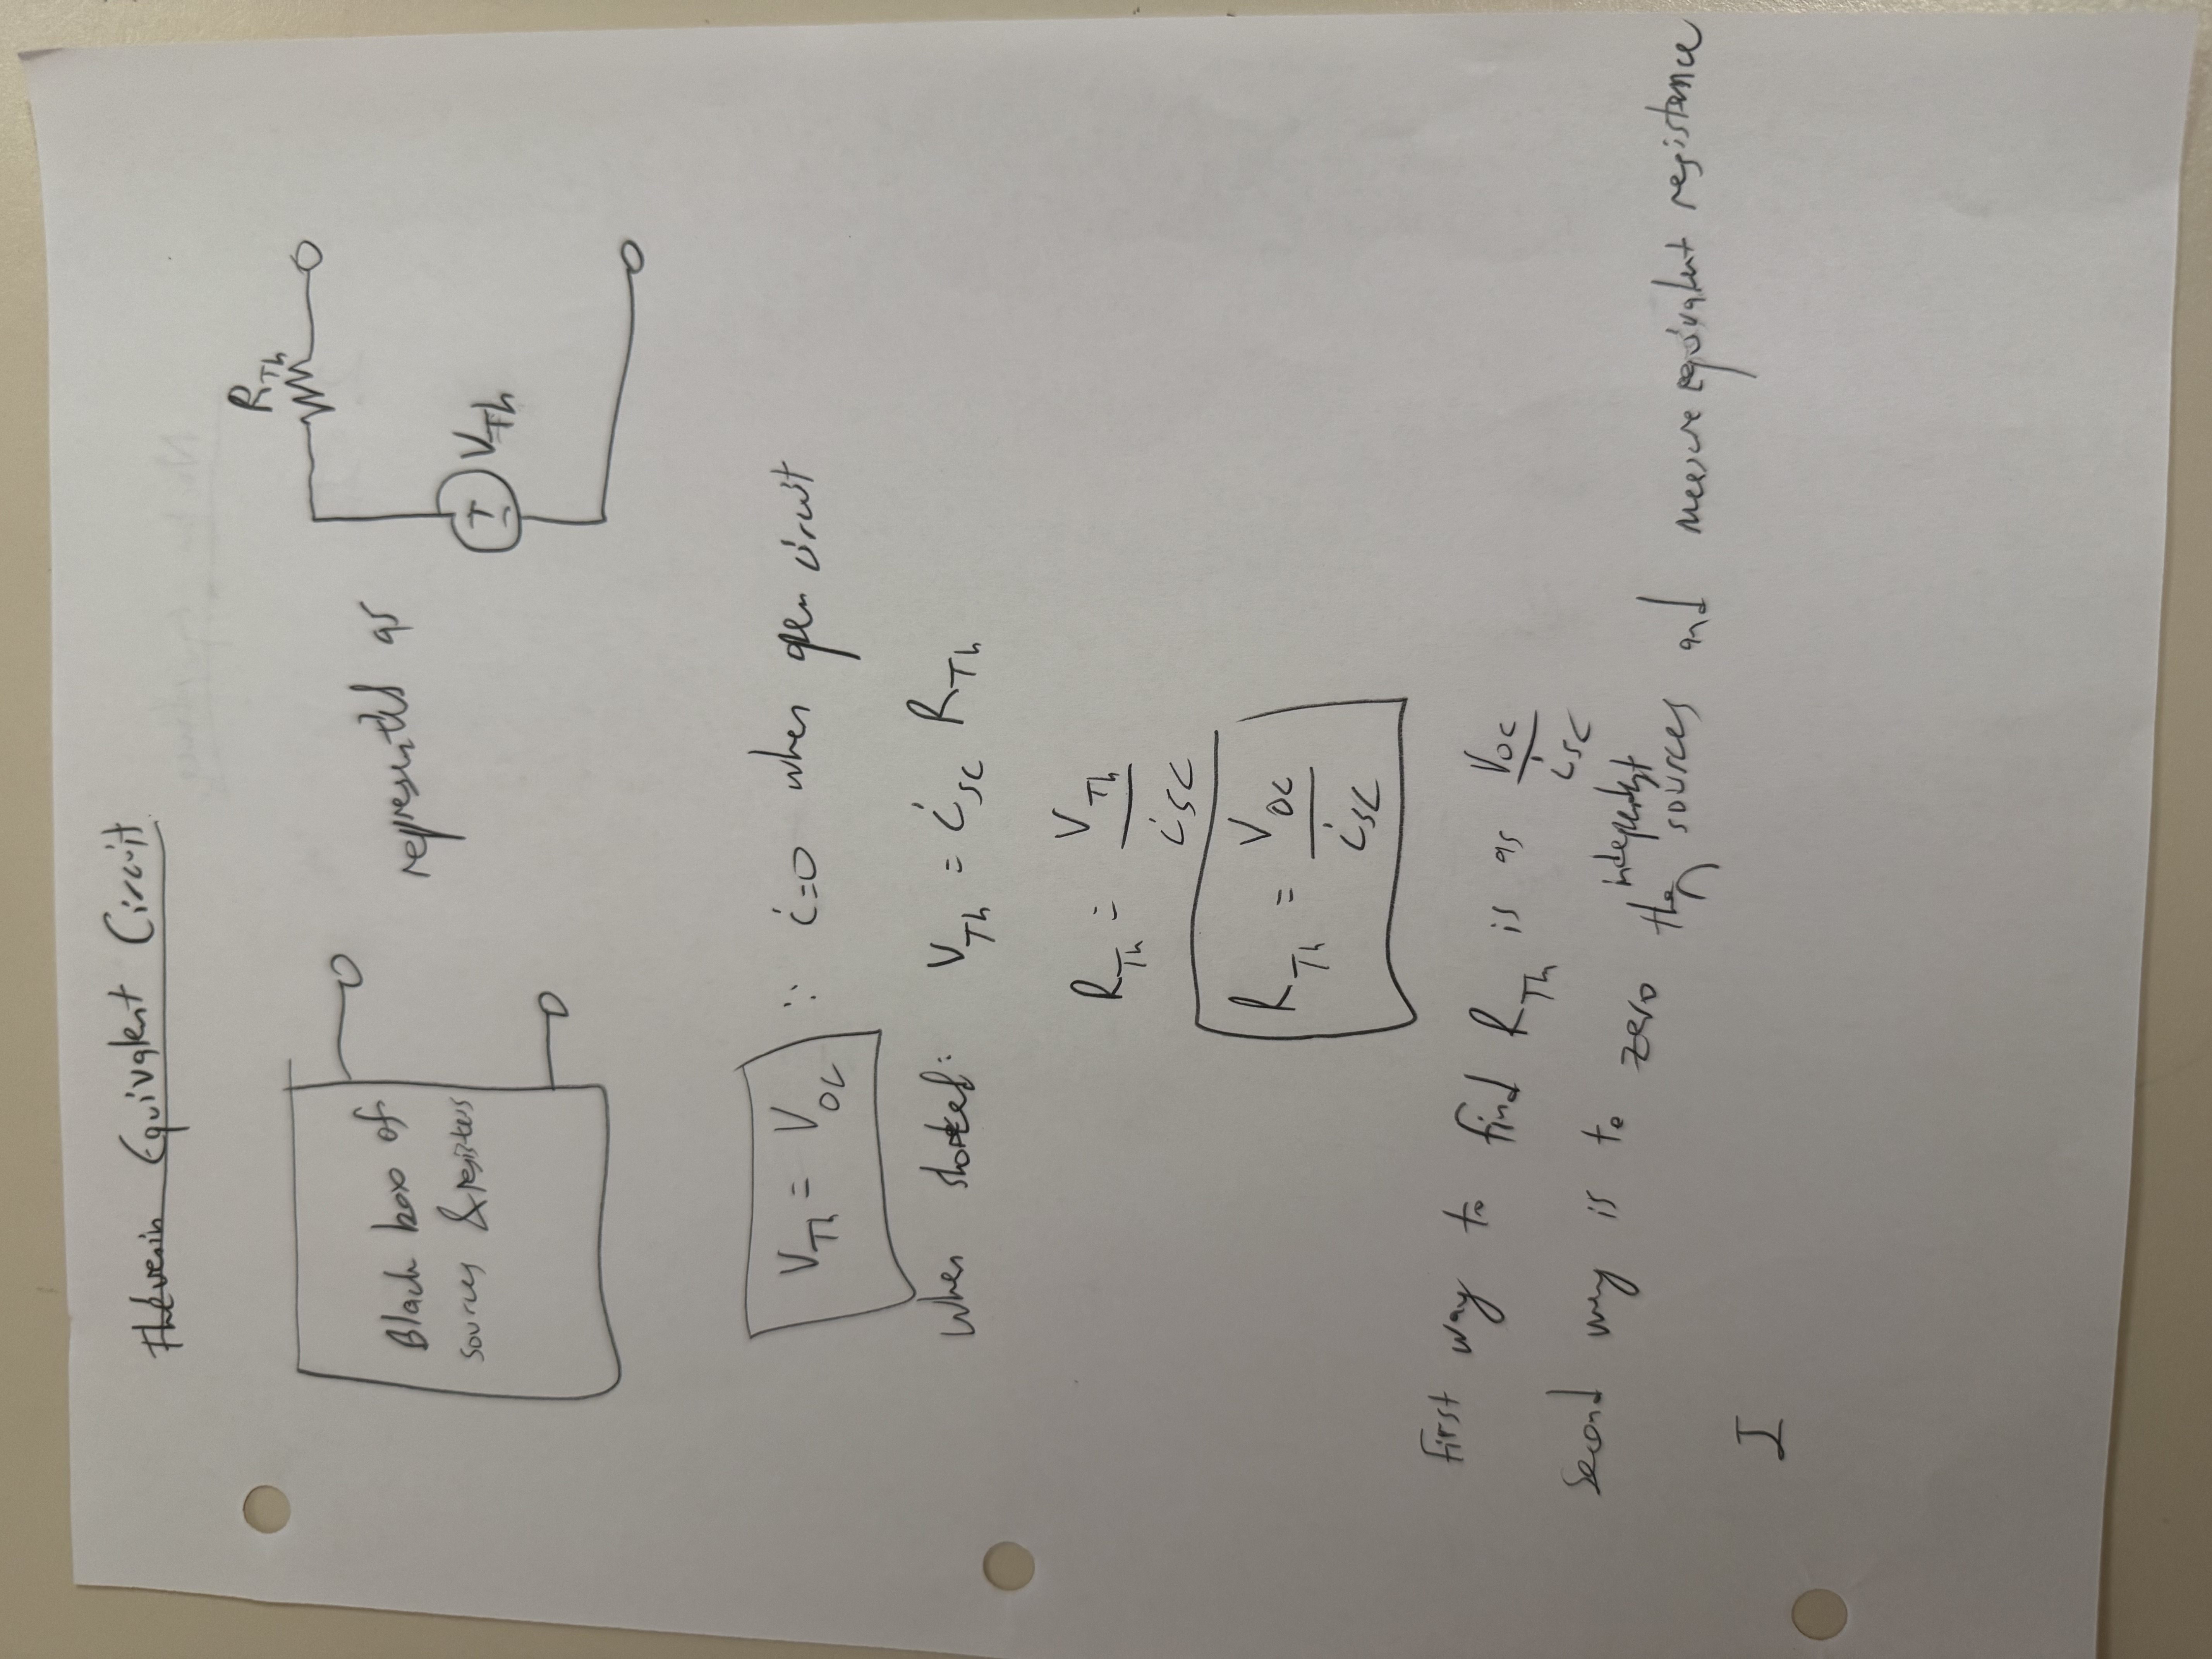 Thevenin Equivalent Circuit
Black box of
sources & resistors
represented as
R_Th
+
-
V_Th
V_Th = V_OC ∵ i=0 when open circuit
When shorted: V_Th = i_SC R_Th
R_Th = V_Th / i_SC
R_Th = V_OC / i_SC
First way to find R_Th is as V_OC / i_SC
Second way is to zero the independent sources and measure equivalent resistance
I